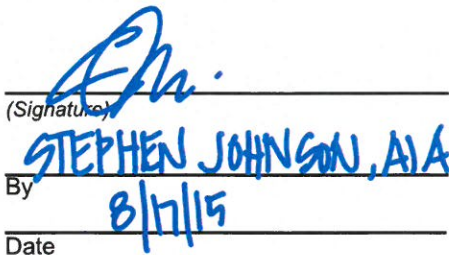 (Signature)
STEPHEN JOHNSON, AIA
By
8/17/15
Date